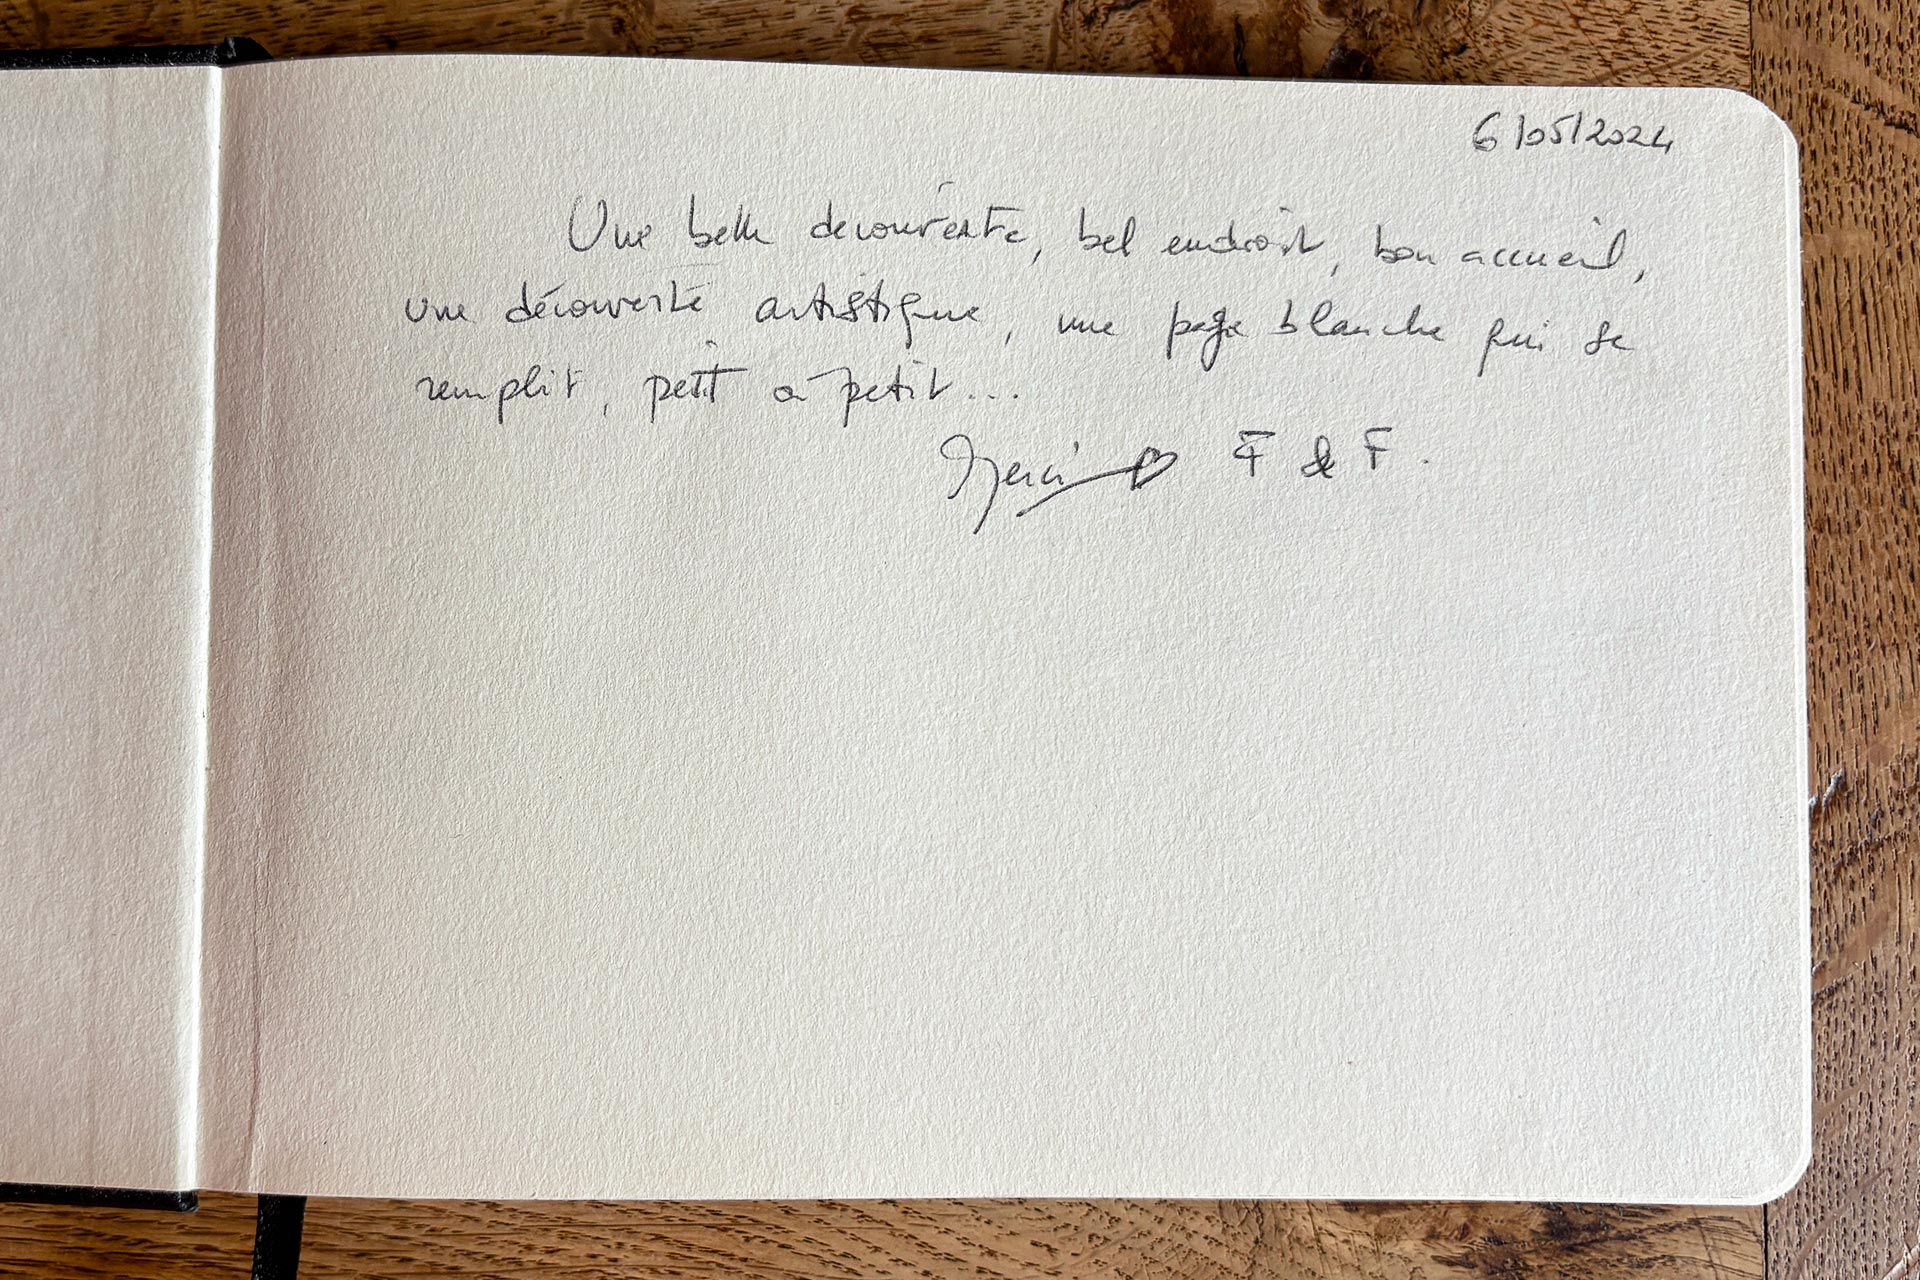 6/05/2024
Une belle decouverte, bel endroit, bon accueil,
une découverte artistique, une page blanche qui se
remplit, petit à petit...
Merci ♡ F & F.